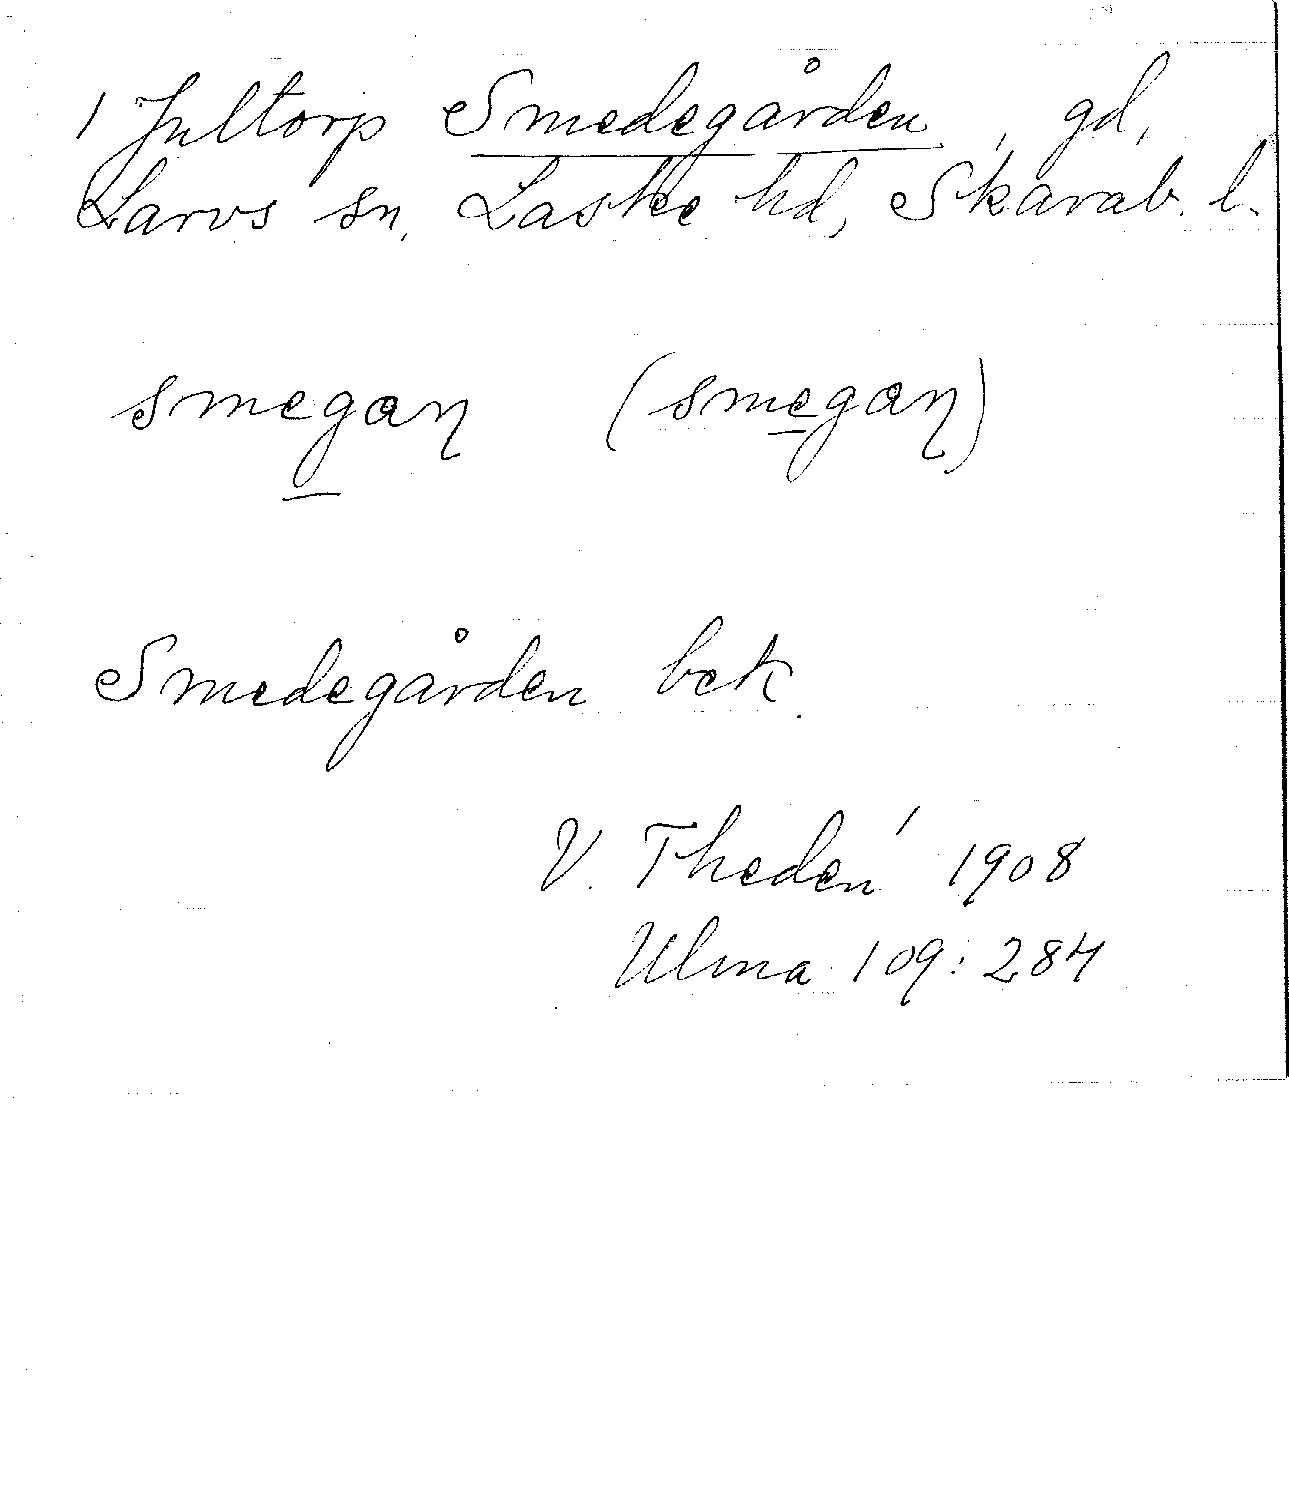 1 Jultorp Smedegården, gd,
Larvs sn, Laske hd, Skarab. l.
smegaɳ (smegaɳ)
Smedegården bek.
V. Thedén 1908
Ulma 109:284